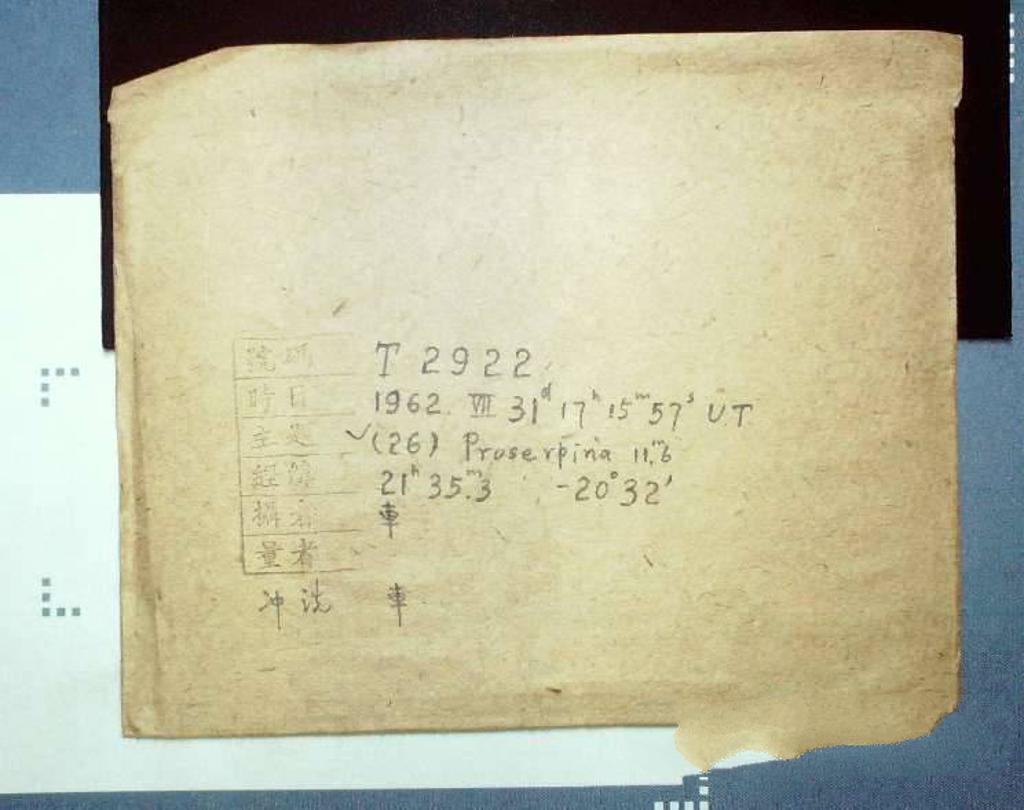 號碼 T 2922
時日 1962. VII 31ᵈ 17ʰ 15ᵐ 57ˢ UT
主題 ✓(26) Proserpina 11.ᵐ6
經緯 21ʰ 35.ᵐ3 -20°32′
攝者 車
量者
冲洗 車